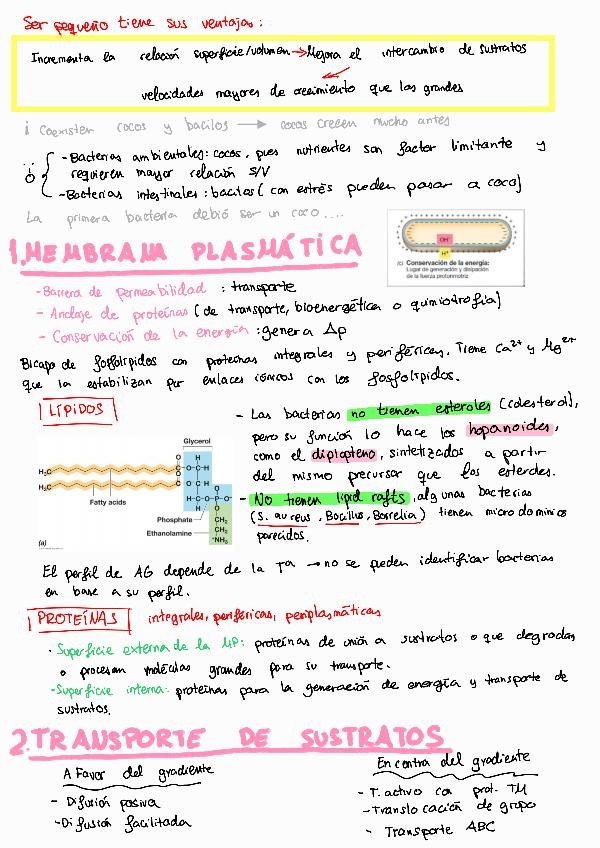 Ser pequeño tiene sus ventajas:
Incrementa la relación superficie/volumen → Mejora el intercambio de sustratos
velocidades mayores de crecimiento que las grandes
¡ Coexisten cocos y bacilos → cocos crecen mucho antes
- Bacterias ambientales: cocos, pues nutrientes son factor limitante y
requieren mayor relación S/V
- Bacterias intestinales: bacilos (con estrés pueden pasar a coco)
La primera bacteria debió ser un coco....
1. MEMBRANA PLASMÁTICA
OH⁻
H⁺
(c) Conservación de la energía:
Lugar de generación y disipación
de la fuerza protonmotriz
- Barrera de permeabilidad : transporte
- Anclaje de proteínas (de transporte, bioenergética o quimiotrofia)
- Conservación de la energía : genera Δp
Bicapa de fosfolípidos con proteínas integrales y periféricas. Tiene Ca²⁺ y Mg²⁺
que la estabilizan por enlaces iónicos con los fosfolípidos.
LÍPIDOS
- Las bacterias no tienen esteroles (colesterol),
pero su función lo hace los hopanoides,
como el diplopteno, sintetizados a partir
del mismo precursor que los esteroles.
- No tienen lipid rafts, algunas bacterias
(S. aureus, Bacillus, Borrelia) tienen microdominios
parecidos.
Glycerol
H₃C
H₃C
Fatty acids
Phosphate
Ethanolamine
(a)
El perfil de AG depende de la Tª → no se pueden identificar bacterias
en base a su perfil.
PROTEÍNAS integrales, periféricas, periplasmáticas
· Superficie externa de la MP: proteínas de unión a sustratos o que degradan
o procesan moléculas grandes para su transporte.
- Superficie interna: proteínas para la generación de energía y transporte de
sustratos.
2. TRANSPORTE DE SUSTRATOS
A Favor del gradiente
- Difusión pasiva
- Difusión facilitada
En contra del gradiente
- T. activo con prot. TM
- Translocación de grupo
- Transporte ABC